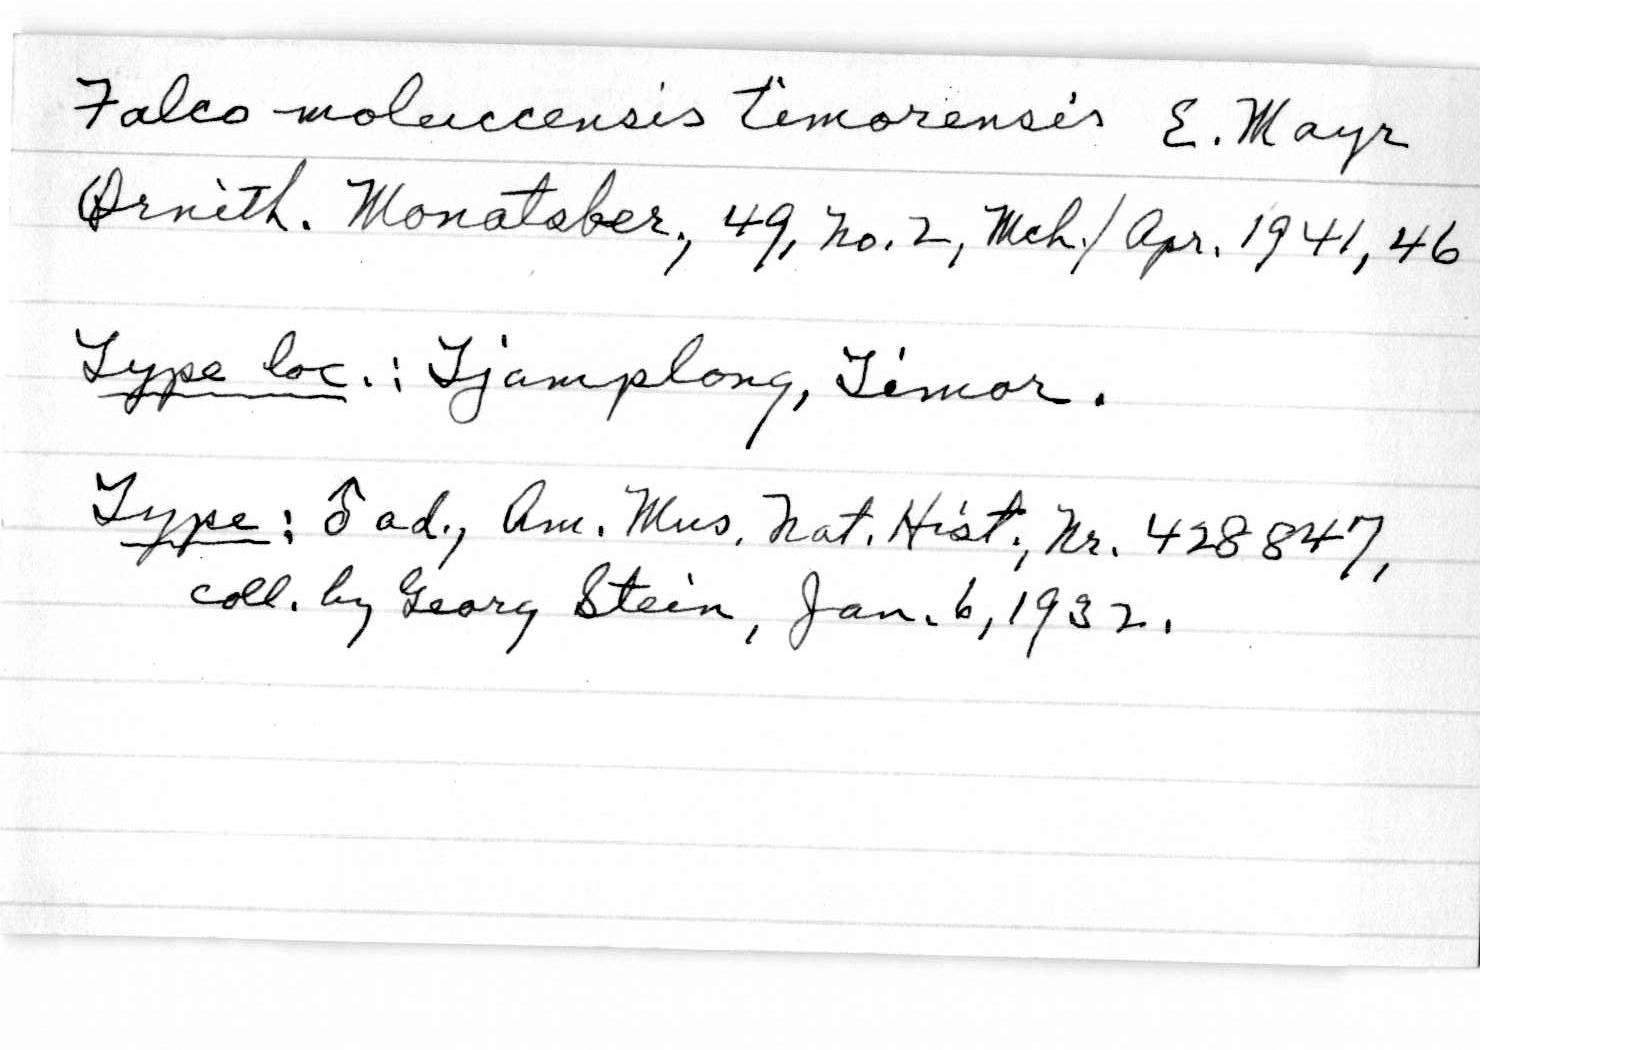 Falco moluccensis timorensis E. Mayr
Ornith. Monatsber., 49, no. 2, Mch./Apr. 1941, 46
Type loc.: Tjamplong, Timor.
Type: ♂ ad., Am. Mus. Nat. Hist., Nr. 428847,
coll. by Georg Stein, Jan. 6, 1932.